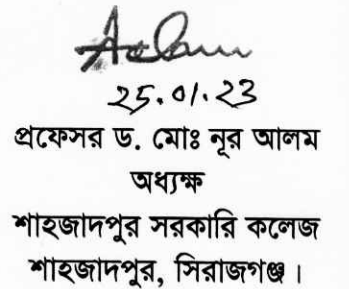 25.01.23
প্রফেসর ড. মোঃ নূর আলম
অধ্যক্ষ
শাহজাদপুর সরকারি কলেজ
শাহজাদপুর, সিরাজগঞ্জ।